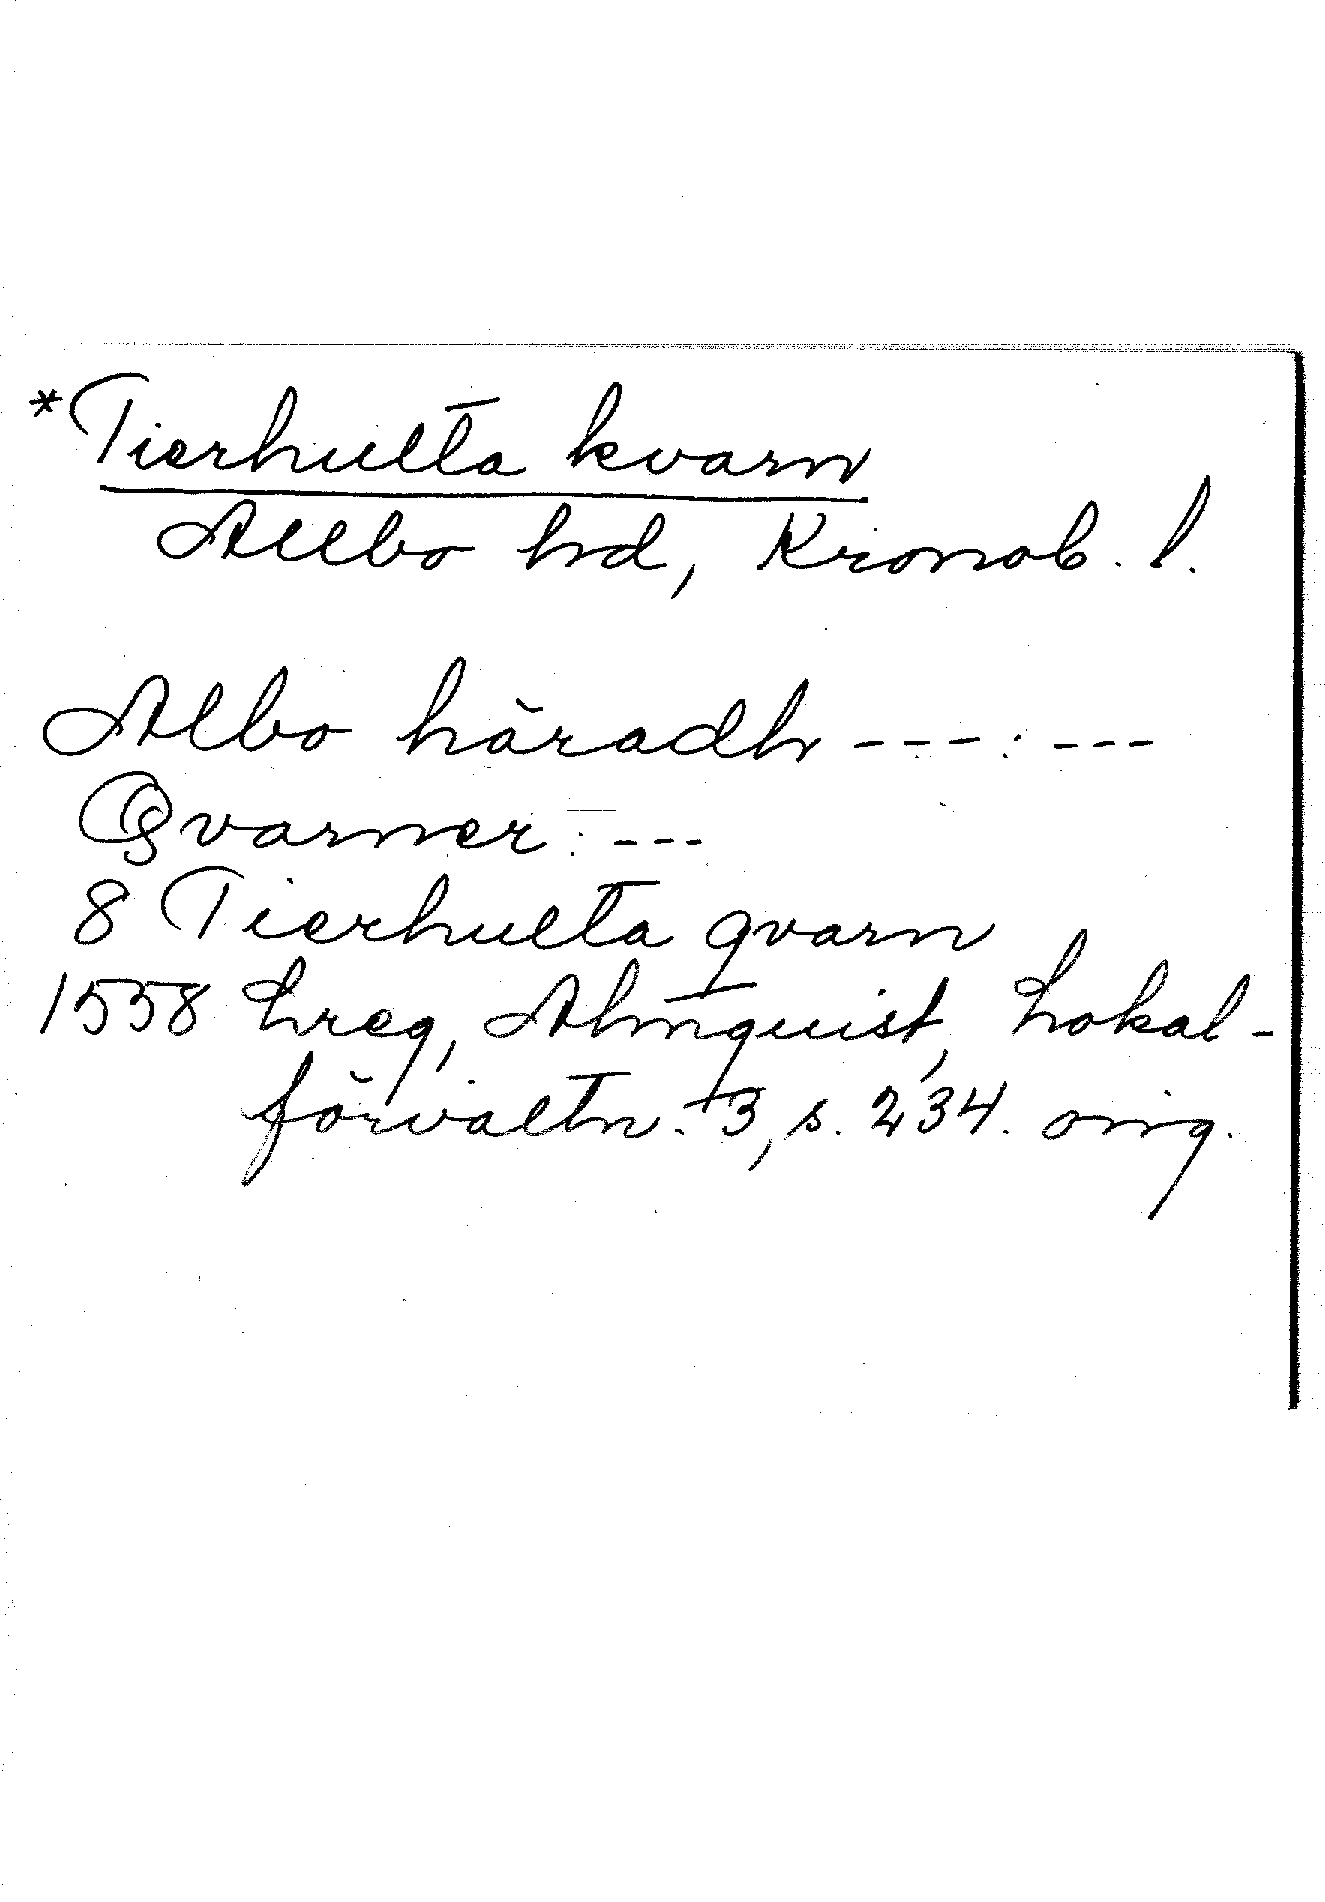 *Tierhulta kvarn
Allbo hd, Kronob. l.
Albo häradh ---: ---
Qvarner: ---
8 Tierhulta qvarn
1558 Lreg, Almquist, Lokal-
förvaltn. 3, s. 234. orig.